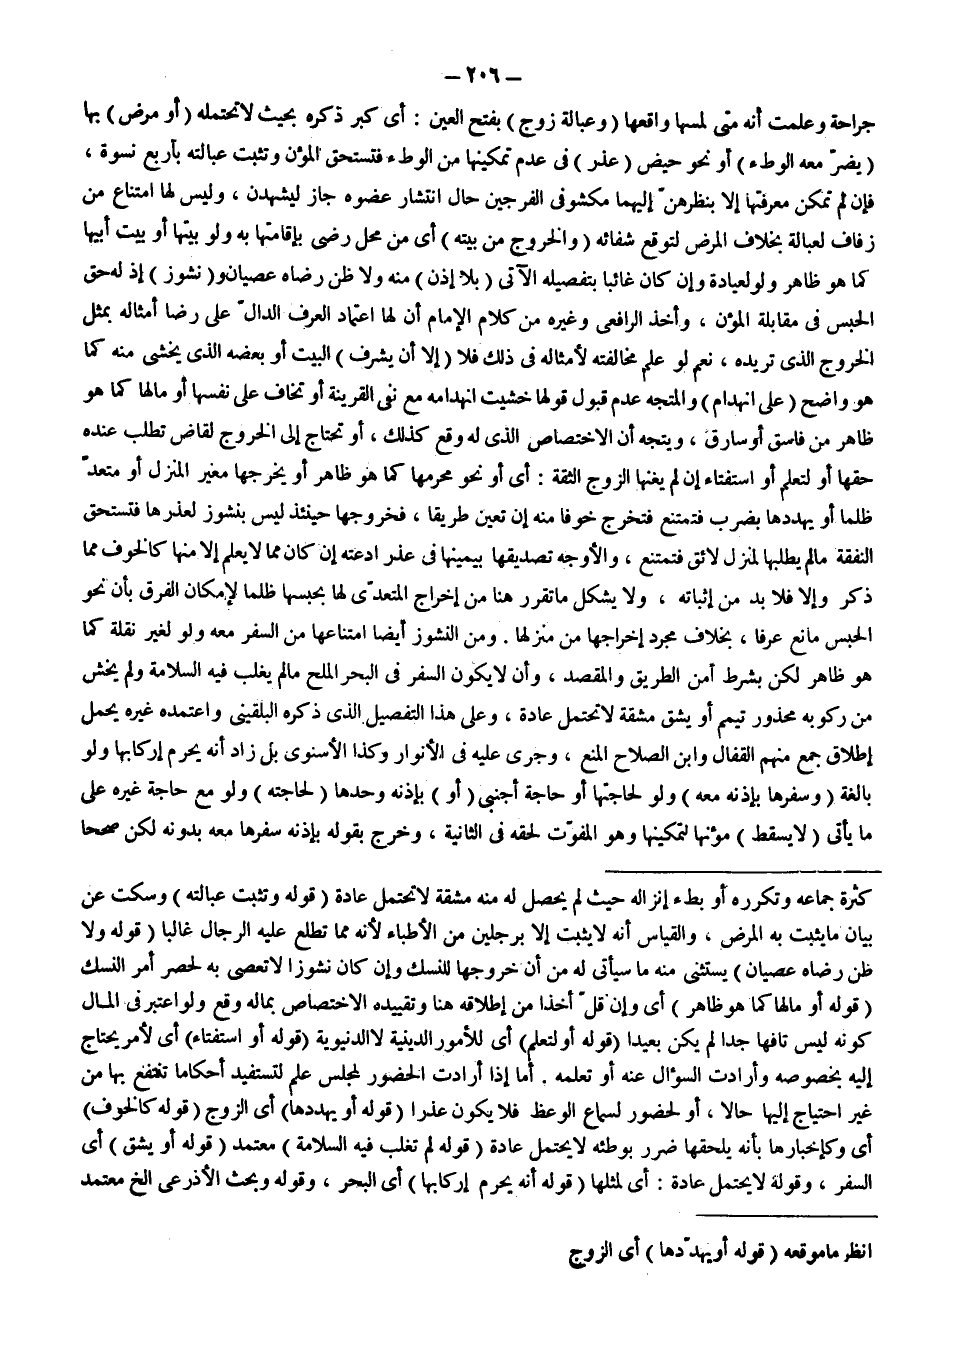 — ٢٠٦ —
جراحة وعلمت أنه متى لمسها واقعها ( وعبالة زوج ) بفتح العين : أى كبر ذكره بحيث لاتحتمله ( أو مرض ) بها
( يضرّ معه الوطء ) أو نحو حيض ( عذر ) فى عدم تمكينها من الوطء فتستحق المؤن وتثبت عبالته بأربع نسوة ،
فإن لم تمكن معرفتها إلا بنظرهنّ إليهما مكشوفى الفرجين حال انتشار عضوه جاز ليشهدن ، وليس لها امتناع من
زفاف لعبالة بخلاف المرض لتوقع شفائه ( والخروج من بيته ) أى من محل رضى بإقامتها به ولو بيتها أو بيت أبيها
كما هو ظاهر ولو لعيادة وإن كان غائبا بتفصيله الآتى ( بلا إذن ) منه ولا ظن رضاه عصيان و( نشوز ) إذ له حق
الحبس فى مقابلة المؤن ، وأخذ الرافعى وغيره من كلام الإمام أن لها اعتماد العرف الدالّ على رضا أمثاله بمثل
الخروج الذى تريده ، نعم لو علم مخالفته لأمثاله فى ذلك فلا ( إلا أن يشرف ) البيت أو بعضه الذى يخشى منه كما
هو واضح ( على انهدام ) والمتجه عدم قبول قولها خشيت انهدامه مع نفى القرينة أو تخاف على نفسها أو مالها كما هو
ظاهر من فاسق أو سارق ، ويتجه أن الاختصاص الذى له وقع كذلك ، أو تحتاج إلى الخروج لقاض تطلب عنده
حقها أو لتعلم أو استفتاء إن لم يغنها الزوج الثقة : أى أو نحو محرمها كما هو ظاهر أو يخرجها معير المنزل أو متعدّ
ظلما أو يهددها بضرب فتمتنع فتخرج خوفا منه إن تعين طريقا ، فخروجها حينئذ ليس بنشوز لعذرها فتستحق
النفقة مالم يطلبها لمنزل لائق فتمتنع ، والأوجه تصديقها بيمينها فى عذر ادعته إن كان مما لايعلم إلا منها كالخوف مما
ذكر وإلا فلا بد من إثباته ، ولا يشكل ماتقرر هنا من إخراج المتعدّى لها بحبسها ظلما لإمكان الفرق بأن نحو
الحبس مانع عرفا ، بخلاف مجرد إخراجها من منزلها . ومن النشوز أيضا امتناعها من السفر معه ولو لغير نقلة كما
هو ظاهر لكن بشرط أمن الطريق والمقصد ، وأن لايكون السفر فى البحر الملح مالم يغلب فيه السلامة ولم يخش
من ركوبه محذور تيمم أو يشق مشقة لاتحتمل عادة ، وعلى هذا التفصيل الذى ذكره البلقينى واعتمده غيره يحمل
إطلاق جمع منهم القفال وابن الصلاح المنع ، وجرى عليه فى الأنوار وكذا الأسنوى بل زاد أنه يحرم إركابها ولو
بالغة ( وسفرها بإذنه معه ) ولو لحاجتها أو حاجة أجنبى ( أو ) بإذنه وحدها ( لحاجته ) ولو مع حاجة غيره على
ما يأتى ( لايسقط ) مؤنها لتمكينها وهو المفوّت لحقه فى الثانية ، وخرج بقوله بإذنه سفرها معه بدونه لكن صححا
كثرة جماعه وتكرره أو بطء إنزاله حيث لم يحصل له منه مشقة لاتحتمل عادة ( قوله وتثبت عبالته ) وسكت عن
بيان مايثبت به المرض ، والقياس أنه لايثبت إلا برجلين من الأطباء لأنه مما تطلع عليه الرجال غالبا ( قوله ولا
ظن رضاه عصيان ) يستثنى منه ما سيأتى له من أن خروجها للنسك وإن كان نشوزا لاتعصى به لحصر أمر النسك
( قوله أو مالها كما هو ظاهر ) أى وإن قلّ أخذا من إطلاقه هنا وتقييده الاختصاص بماله وقع ولو اعتبر فى المال
كونه ليس تافها جدا لم يكن بعيدا (قوله أو لتعلم) أى للأمور الدينية لاالدنيوية (قوله أو استفتاء) أى لأمر يحتاج
إليه بخصوصه وأرادت السؤال عنه أو تعلمه . أما إذا أرادت الحضور لمجلس علم لتستفيد أحكاما تنتفع بها من
غير احتياج إليها حالا ، أو لحضور لسماع الوعظ فلا يكون عذرا (قوله أو يهددها) أى الزوج (قوله كالخوف)
أى وكإخبارها بأنه يلحقها ضرر بوطئه لايحتمل عادة ( قوله لم تغلب فيه السلامة ) معتمد ( قوله أو يشق ) أى
السفر ، وقوله لايحتمل عادة : أى لمثلها ( قوله أنه يحرم إركابها ) أى البحر ، وقوله وبحث الأذرعى الخ معتمد
انظر ماموقعه ( قوله أو يهدّدها ) أى الزوج